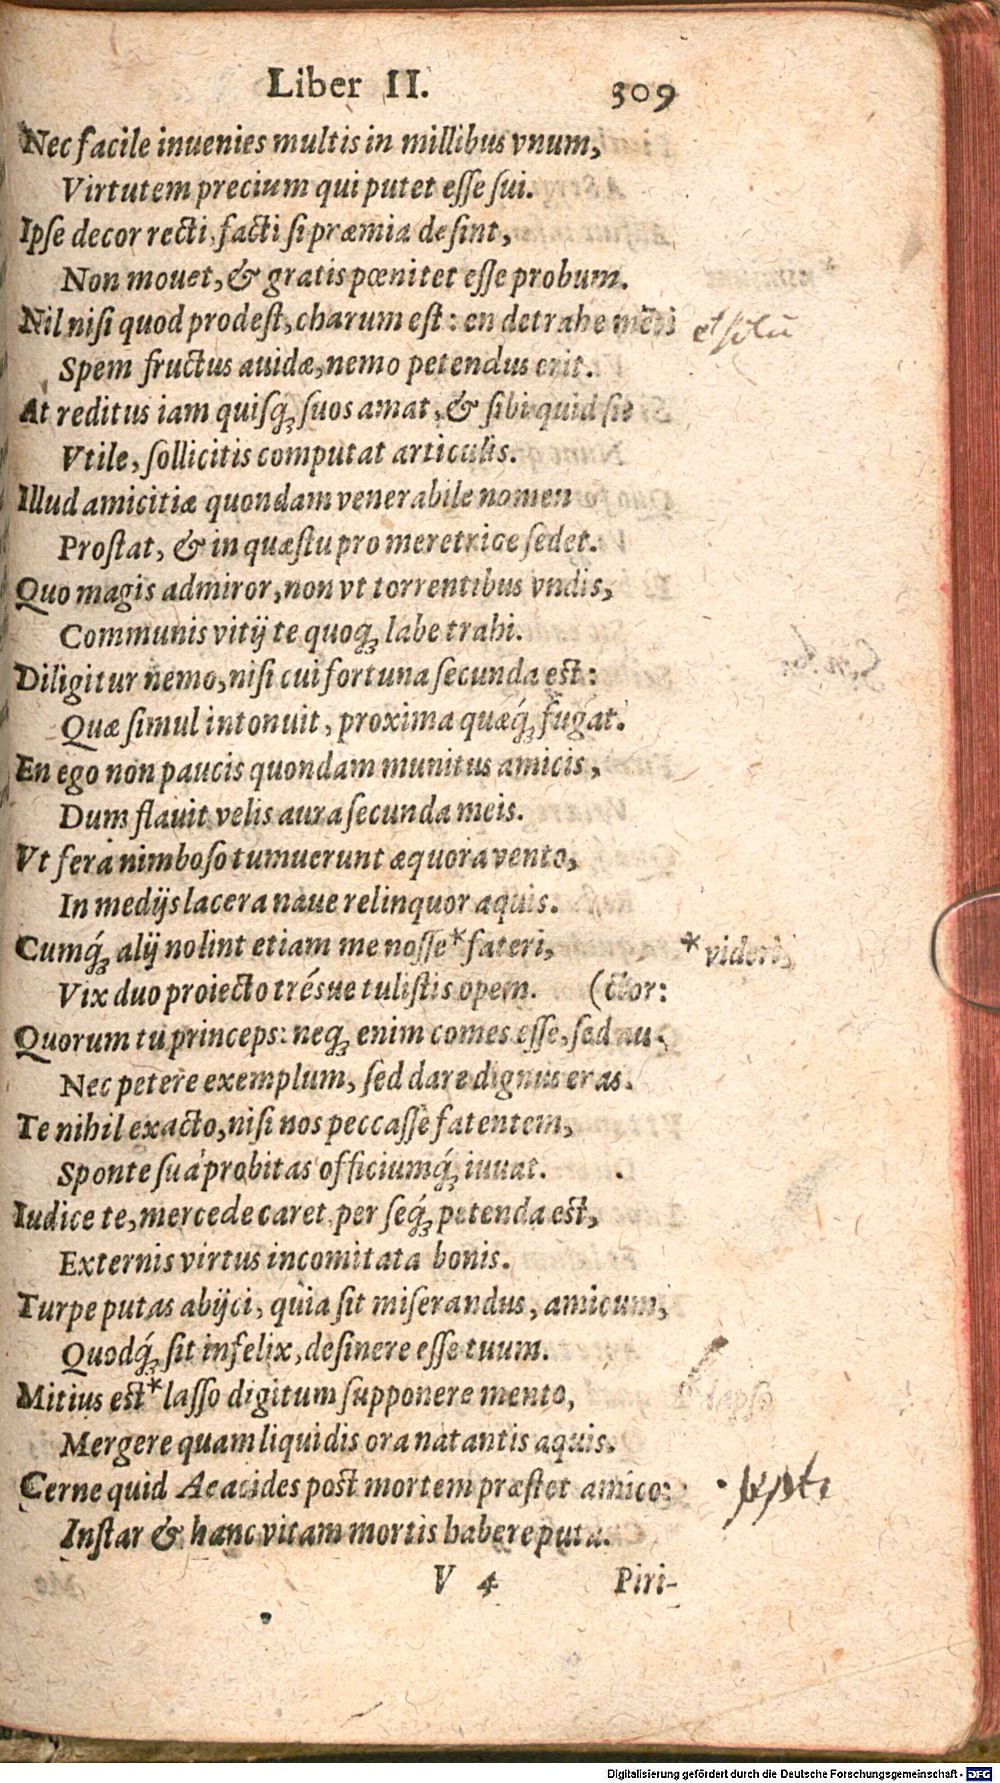 Liber II. 309
Nec facile inuenies multis in millibus vnum,
Virtutem precium qui putet eſſe ſui.
Ipſe decor recti, facti ſi præmia deſint,
Non mouet, & gratis pœnitet eſſe probum.
Nil niſi quod prodeſt, charum eſt: en detrahe meti
Spem fructus auidæ, nemo petendus erit.
At reditus iam quiſq́; ſuos amat, & ſibi quid ſit
Vtile, ſollicitis computat articulis.
Illud amicitiæ quondam venerabile nomen
Proſtat, & in quæſtu pro meretrice ſedet.
Quo magis admiror, non vt torrentibus vndis,
Communis vitij te quoq́; labe trahi.
Diligitur nemo, niſi cui fortuna ſecunda eſt:
Quæ ſimul intonuit, proxima quæq́; fugat.
En ego non paucis quondam munitus amicis,
Dum flauit velis aura ſecunda meis.
Vt fera nimboſo tumuerunt æquora vento,
In medijs lacera naue relinquor aquis.
Cumq́; alij nolint etiam me noſſe * fateri, * videri,
Vix duo proiecto tréſue tuliſtis opem. (ctor:
Quorum tu princeps: neq; enim comes eſſe, ſed au-
Nec petere exemplum, ſed dare dignus eras.
Te nihil exacto, niſi nos peccaſſe fatentem,
Sponte ſua probitas officiumq́; iuuat.
Iudice te, mercede caret, per ſeq́; petenda eſt,
Externis virtus incomitata bonis.
Turpe putas abijci, quia ſit miſerandus, amicum,
Quodq́; ſit infelix, deſinere eſſe tuum.
Mitius eſt * laſſo digitum ſupponere mento,
Mergere quam liquidis ora natantis aquis.
Cerne quid Aeacides post mortem præſtet amico:
Inſtar & hanc vitam mortis habere puta.
V 4 Piri-
Digitalisierung gefördert durch die Deutsche Forschungsgemeinschaft - DFG